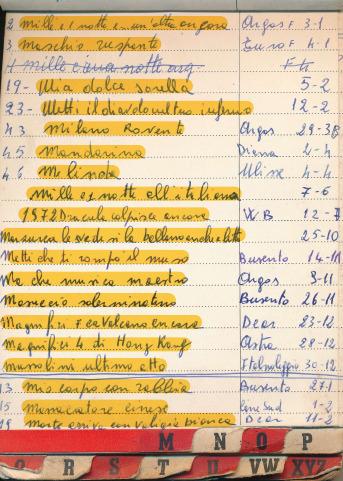 2 mille e 1 notte e un'altra ancora Argos F 3-1
3 Maschio ruspante Euro F 4-1
1 mille e una notte arg. F
19- Mia dolce sorella 5-2
23- Metti il diavolo nel tuo inferno 12-2
43 Milano Rovente Argos 29-3
45 Mandarino Diana 4-4
46 Melinda Ulisse 4-4
Mille e 1 notte all'italiana 7-6
1972 Dracula colpisce ancora W B 12-7
Mazurca le vedesi la ballano a letto 25-10
Metti che ti rompo il muso Busento 14-11
Ma che musica maestro Argos 9-11
Maniaco Busento 26-11
Magnifici 7 cavalcano ancora Dear 23-12
Magnifici 4 di Hong Kong Astra 28-12
mussolini ultimo atto Italnoleggio 30-12
13 Mio corpo con rabbia Busento 27-1
15 Massacratore cinese Cine Sud 1-2
19 Morte arriva con valigia bianca Dear 11-2
M N O P
Q R S T U VW XYZ